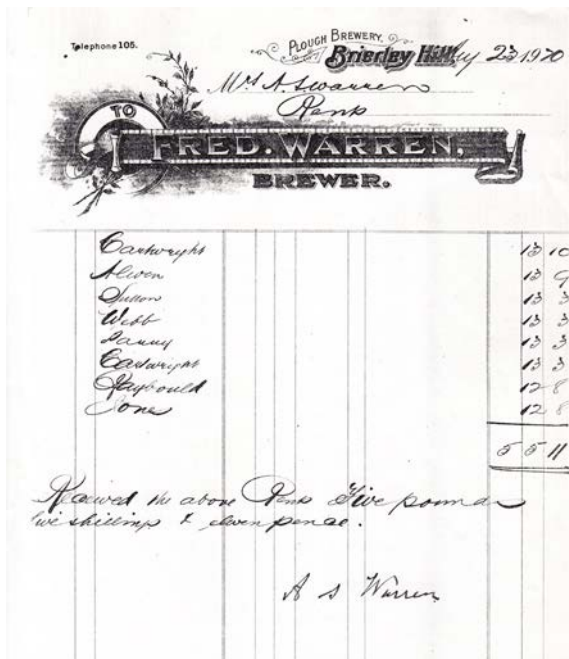 Telephone 105.
PLOUGH BREWERY,
Brierley Hill, 23 1920
Mrs A. S. Warren
Rents
TO
FRED. WARREN,
BREWER.
Cartwright 13 10
13 9
Sutton 13 3
Webb 13 3
13 3
Cartwright 13 3
Raybould 12 8
Jones 12 8
5 5 11
Received the above Rents Five pounds
five shillings & eleven pence.
A S Warren